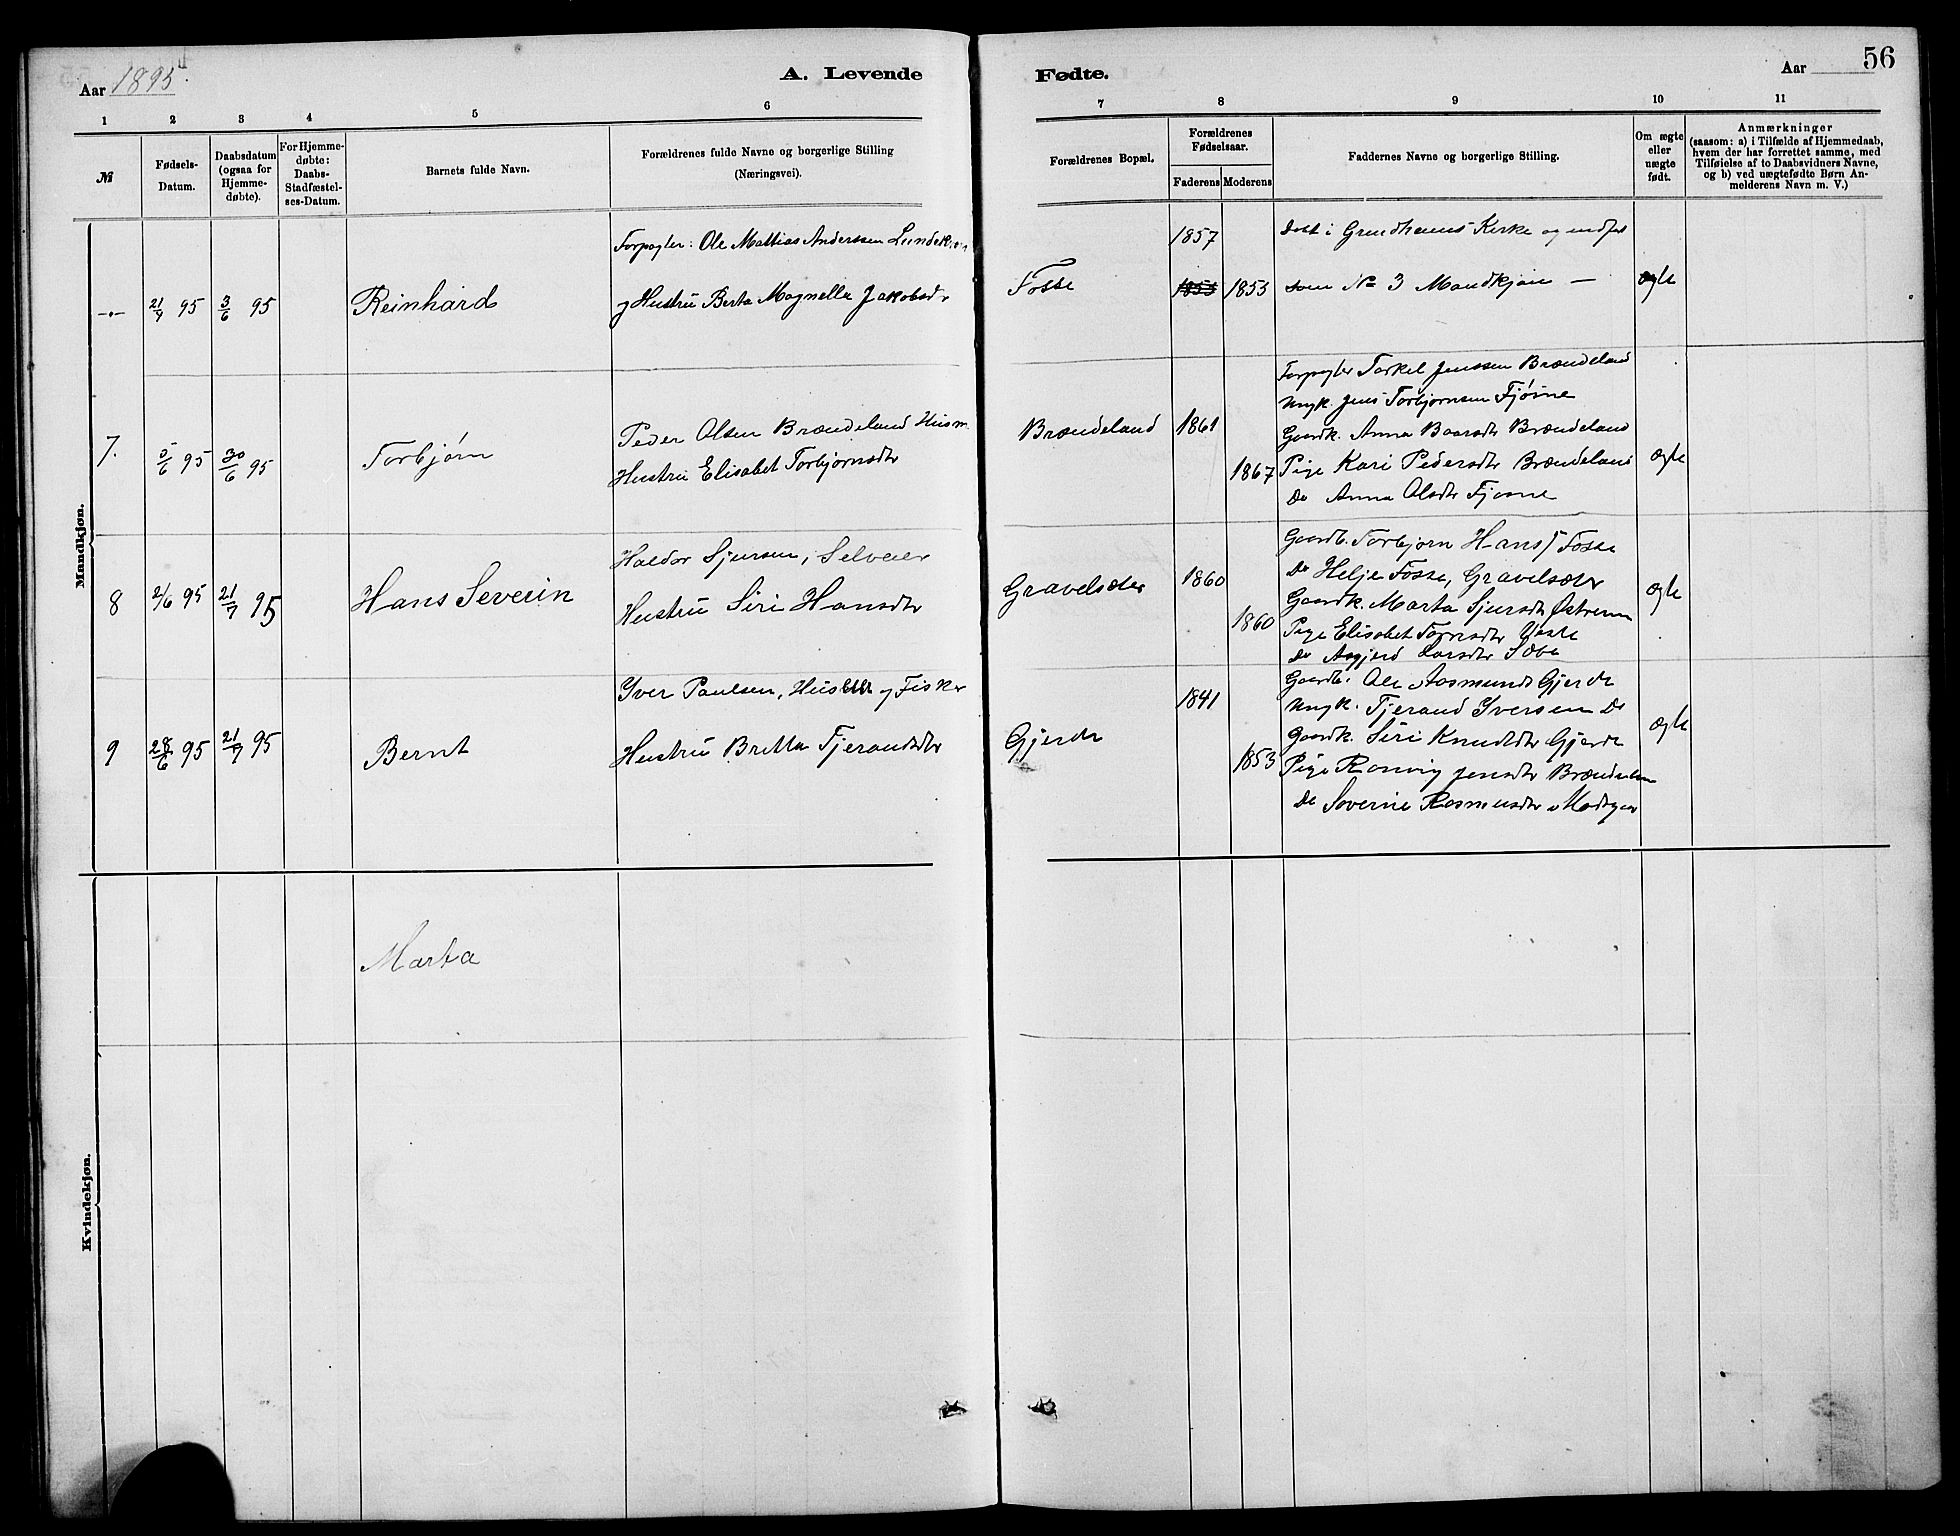 Aar 1895
A. Levende
Fødte.
Aar
56
1 2 3 4 5 6 7 8 9 10 11
№
Fødsels-
Datum.
Daabsdatum
(ogsaa for
Hjemme-
døbte).
For Hjemme-
døbte:
Daabs-
Stadfæstel-
ses-Datum.
Barnets fulde Navn.
Forældrenes fulde Navne og borgerlige Stilling
(Næringsvei).
Forældrenes Bopæl.
Forældrenes
Fødselsaar.
Faderens Moderens
Faddernes Navne og borgerlige Stilling.
Om ægte
eller
uægte
født.
Anmærkninger
(saasom: a) i Tilfælde af Hjemmedaab,
hvem der har forrettet samme, med
Tilføielse af to Daabsvidners Navne,
og b) ved uægtefødte Børn An-
melderens Navn m. V.)
Mandkjøn.
21/4 95
3/6 95
Reinhard
Forpagter: Ole Mattias Anderssen
og Hustru Berta Magnella Jakobsdr
Fosse
1857
1855 1853
Døbt i Grindheims Kirke og indført
som № 3 Mandkjøn —
ægte
7.
5/6 95
30/6 95
Torbjørn
Peder Olsen Brændeland Husm.
Hustru Elisabet Torbjørnsdtr
Brændeland
1861
1867
Forpagter Torkel Jenssen Brændeland
Ungk. Jens Torbjørnsen Fjøsne
Gaardk. Anna Baarsdtr Brændeland
Pige Kari Pedersdtr Brændeland
Do Anna Olsdtr Fjøsne
ægte
8
2/6 95
21/7 95
Hans Severin
Haldor Sjursen, Selveier
Hustru Siri Hansdtr
Gravelsæter
1860
1860
Gaardb. Torbjørn Hans) Fosse
Do Helje Fosse, Gravelsæter
Gaardk. Marta Sjursdtr Østrem
Pige Elisabet
Do Larsdtr Sæbø
ægte
9
28/6 95
21/7 95
Bernt
Yver Paulsen, og Fisker
Hustru Britta Tjerandsdtr
Gjerde
1841
1853
Gaardb. Ole Aasmunds Gjerde
Ungk. Tjerand Yversen Do
Gaardk. Siri Knudsdtr Gjerde
Pige Ranvig Jensdtr
Do Severine Rasmusdtr
ægte
Kvindekjøn.
Marta